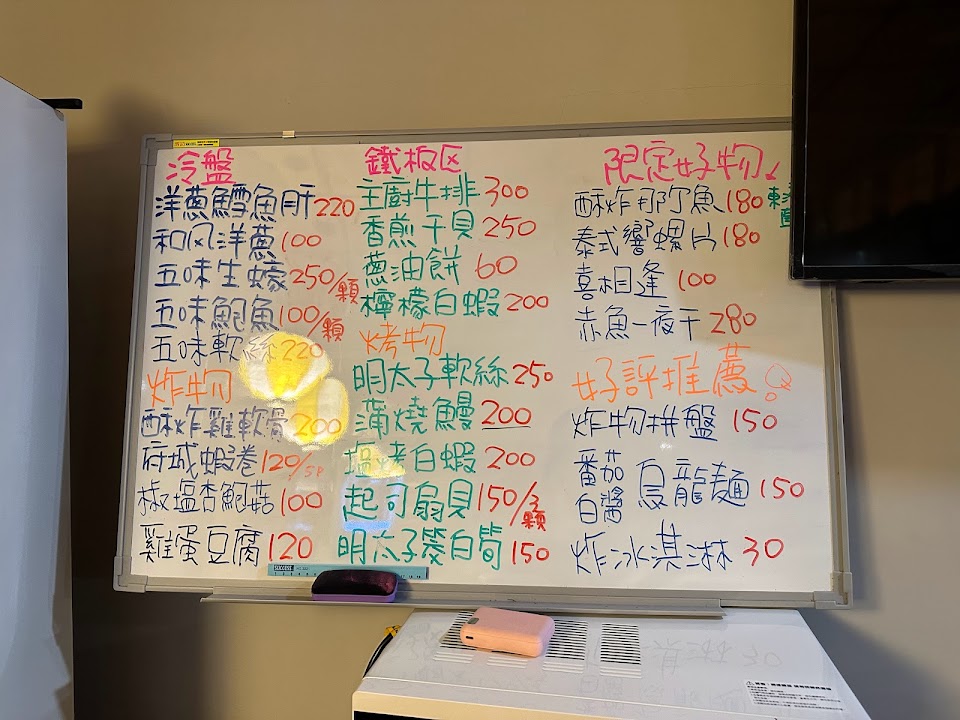 冷盤
洋蔥鱈魚肝220
和风洋蔥100
五味生蠔250/顆
五味鮑魚100/顆
五味軟絲220
炸物
酥炸雞軟骨200
府城蝦卷120/5P
椒塩杏鮑菇100
雞蛋豆腐120
鐵板区
主廚牛排300
香煎干貝250
蔥油餅60
檸檬白蝦200
烤物
明太子軟絲250
蒲燒鰻200
塩烤白蝦200
起司扇貝150/3顆
明太子筊白筍150
限定好物
酥炸那個魚180
泰式響螺片180
喜相逢100
赤魚一夜干280
好評推薦
炸物拼盤150
番茄白醬烏龍麵150
炸冰淇淋30
SUCCESS